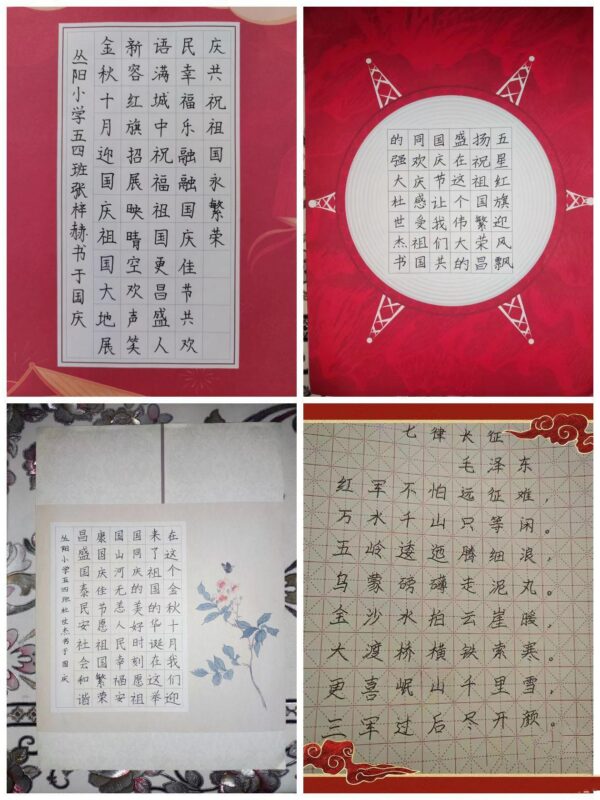 金秋十月迎国庆祖国大地展
新容红旗招展映晴空欢声笑
语满城中祝福祖国更昌盛人
民幸福乐融融国庆佳节共欢
庆共祝祖国永繁荣
丛阳小学五四班张梓赫书于国庆
五星红旗迎风飘
扬祝祖国繁荣昌
盛在这个伟大的
国庆节让我们共
同欢庆感受祖国
的强大杜世杰书
在这个金秋十月我们迎
来了祖国的华诞在这举
国同庆的美好时刻愿祖
国山河无恙人民幸福安
康国庆佳节愿祖国繁荣
昌盛国泰民安社会和谐
丛阳小学五四班杜世杰书于国庆
七律长征
毛泽东
红军不怕远征难，
万水千山只等闲。
五岭逶迤腾细浪，
乌蒙磅礴走泥丸。
金沙水拍云崖暖，
大渡桥横铁索寒。
更喜岷山千里雪，
三军过后尽开颜。